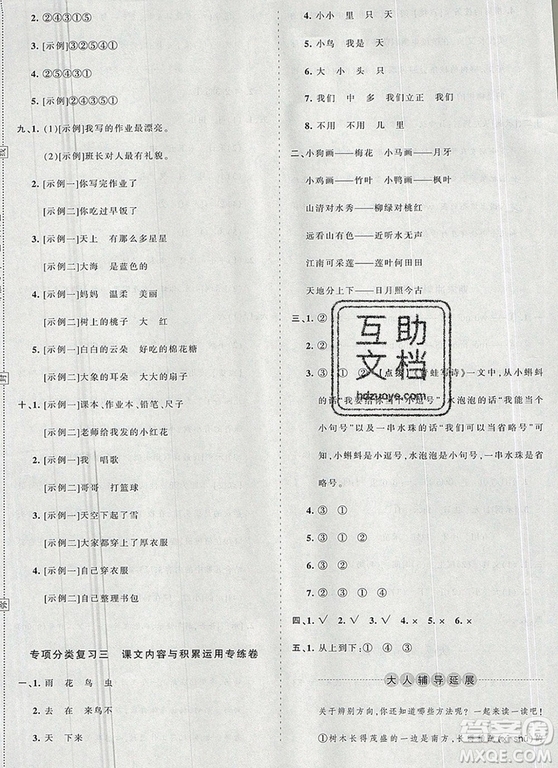 [示例]③②④⑤①
4. ②④⑤③①
5. [示例]②④③⑤①
九、1. (1)[示例]我写的作业最漂亮。
(2)[示例]班长对人最有礼貌。
2. [示例一]你写完作业了
[示例二]你吃过早饭了
3. [示例一]天上 有那么多星星
[示例二]大海 是蓝色的
4. [示例一]妈妈 温柔 美丽
[示例二]树上的桃子 大 红
5. [示例一]白白的云朵 好吃的棉花糖
[示例二]大象的耳朵 大大的扇子
十、1. [示例一]课本、作业本、铅笔、尺子
[示例二]老师给我发的小红花
2. [示例一]我 唱歌
[示例二]哥哥 打篮球
3. [示例一]天空下起了雪
[示例二]大家都穿上了厚衣服
4. [示例一]自己穿衣服
[示例二]自己整理书包
专项分类复习三 课文内容与积累运用专练卷
一、1. 雨 花 鸟 虫
2. 去 在 来鸟不
3. 天 下来
4. 小小 里 只 天
5. 小鸟 我是 天
6. 大 小 头 只
7. 我们 中 多 我们立正 我们
8. 不用 不用 几 里
二、小狗画——梅花 小马画——月牙
小鸡画——竹叶 小鸭画——枫叶
山清对水秀——柳绿对桃红
远看山有色——近听水无声
江南可采莲——莲叶何田田
天地分上下——日月照今古
三、1. ②
2. ①
3. ③ ① ② [点拨]《青蛙写诗》一文中,从小蝌蚪
的话"我要给你当个小逗号"、水泡泡的话"我能当个
小句号"以及一串水珠的话"我们可以当省略号"可
知,小蝌蚪当小逗号,水泡泡当小句号,一串水珠是省
略号。
4. ③ ①
5. ③ ② ①
6. ② ① ③
四、1. √ 2. × 3. √ 4. × 5. × 6. √
五、1. 从上到下:① ④ ③
大人辅导延展
关于辨别方向,你还知道哪些方法呢?一起来读一读吧!
①树木长得茂盛的一面是南方,
互助文档
hdzuoye.com
答案圈
MXQE.COM